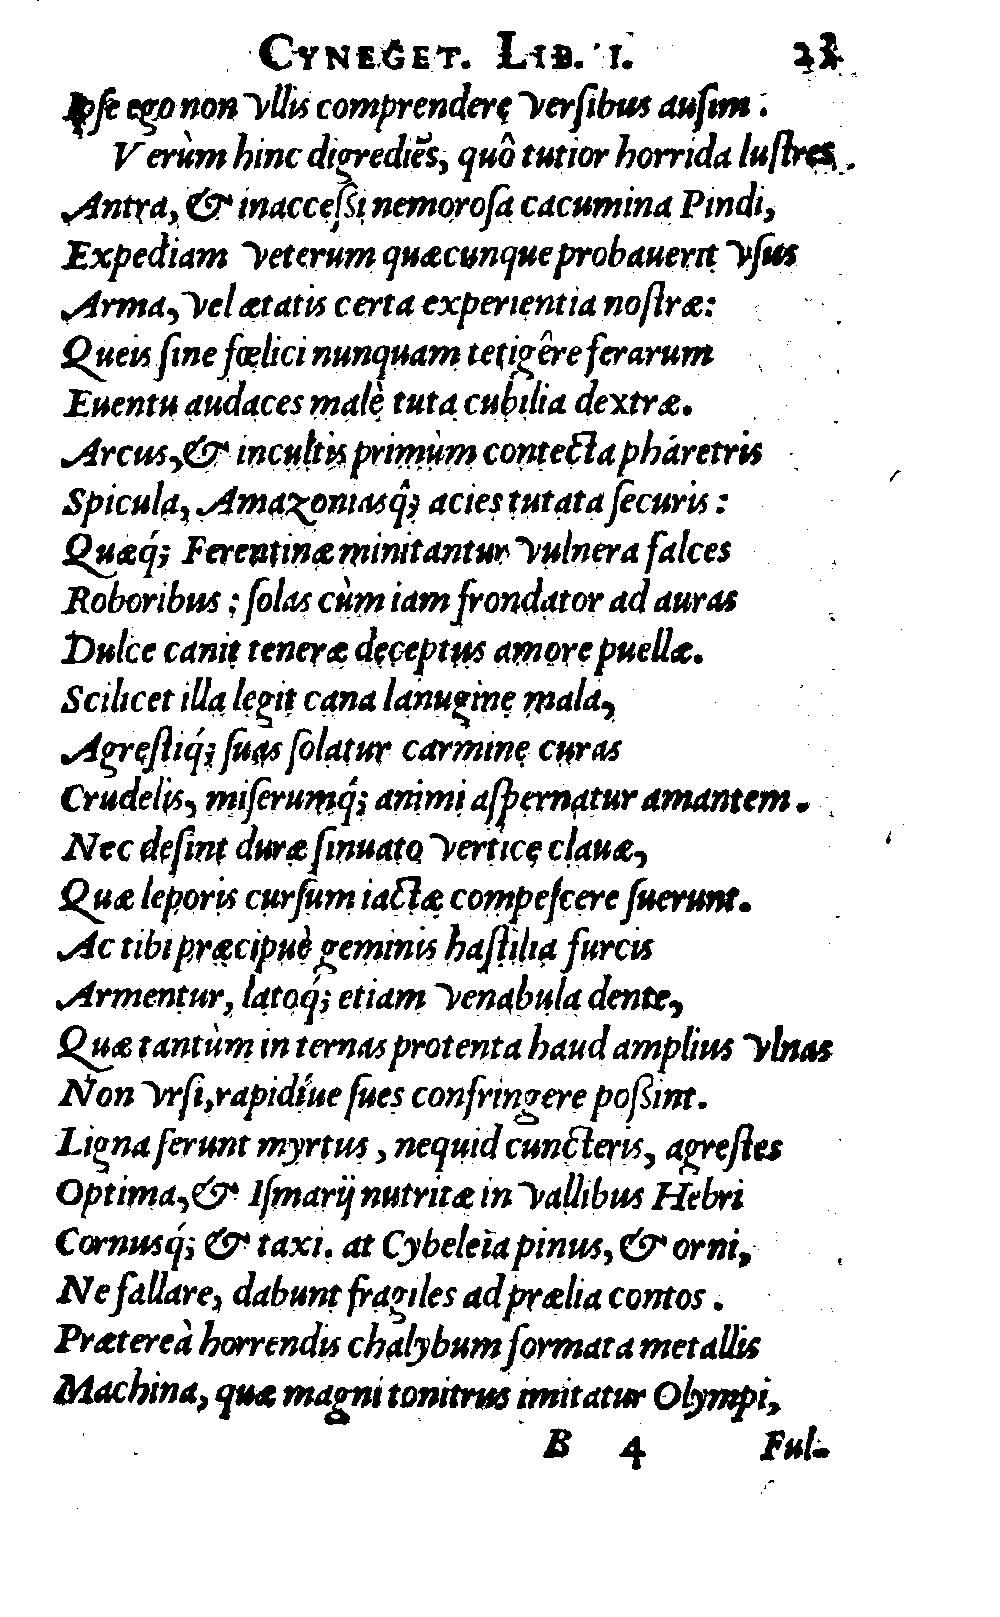 CYNEGET. LIB. I. 23
Ipse ego non vllis comprendere versibus ausim.
Verùm hinc digrediẽs, quô tutior horrida lustres
Antra, & inaccessi nemorosa cacumina Pindi,
Expediam veterum quæcunque probauerit vsus
Arma, vel ætatis certa experientia nostræ:
Queis sine fœlici nunquam tetigêre ferarum
Euentu audaces malè tuta cubilia dextræ.
Arcus, & incultis primùm contecta pháretris
Spicula, Amazoniasq́; acies tutata securis:
Quæq́; Ferentinæ minitantur vulnera falces
Roboribus: solas cùm iam frondator ad auras
Dulce canit teneræ deceptus amore puellæ.
Scilicet illa legit cana lanugine mala,
Agrestiq́; suas solatur carmine curas
Crudelis, miserumq́; animi aspernatur amantem.
Nec desint duræ sinuato vertice clauæ,
Quæ leporis cursum iactæ compescere suerunt.
Ac tibi præcipuè geminis hastilia furcis
Armentur, latoq́; etiam venabula dente,
Quæ tantùm in ternas protenta haud amplius vlnas
Non vrsi, rapidíue sues confringere possint.
Ligna ferunt myrtus, nequid cuncteris, agrestes
Optima, & Ismarij nutritæ in vallibus Hebri
Cornusq́; & taxi. at Cybeleïa pinus, & orni,
Ne fallare, dabunt fragiles ad prælia contos.
Prætereà horrendis chalybum formata metallis
Machina, quæ magni tonitrus imitatur Olympi,
B 4 Ful-